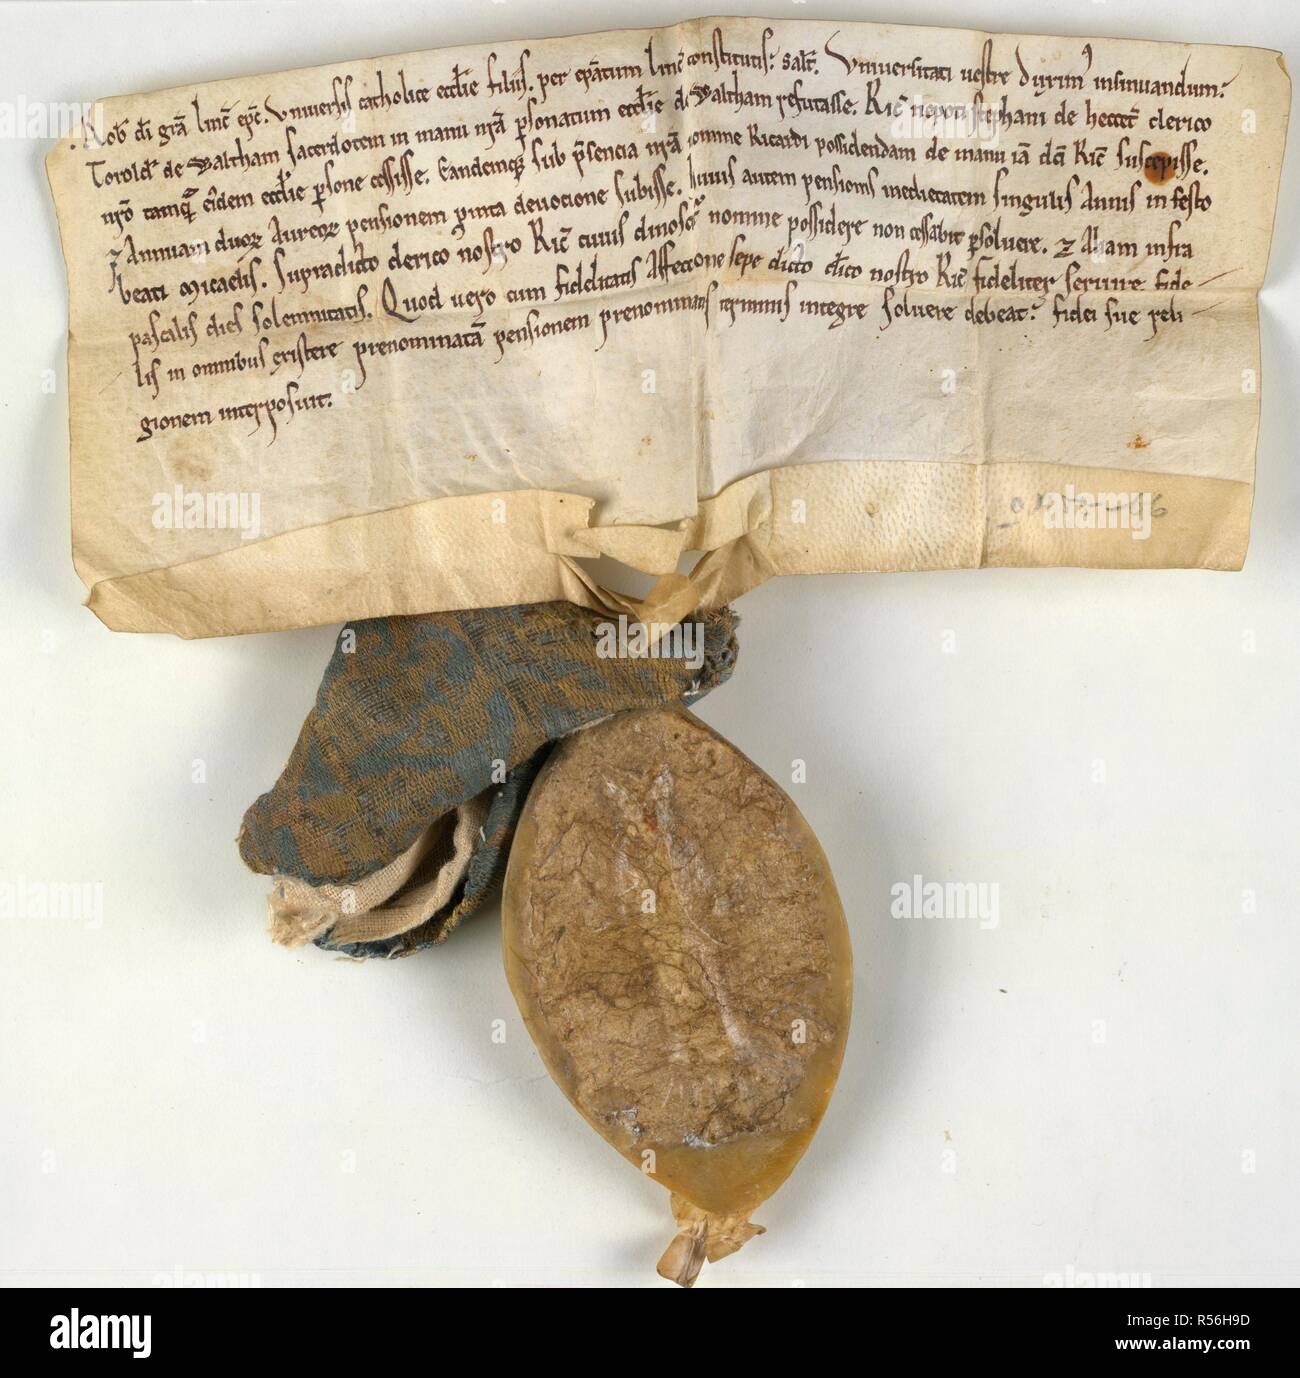 Rob̄ di gr̄a linc̄ ep̄c. Vniuersis catholice eccl̄ie filiis. per ep̄atum linc̄ constitutis: salt̄. Vniuersitati uestre Duxim' insinuandum:
Torold' de Waltham sacerdotem in manu nr̄a p̄sonatum eccl̄ie de Waltham refutasse. Ric̄ nepoti stephani de clerico
nr̄o tamq̄ eidem eccl̄ie p̄sone cessisse. Eandemq; sub p̄sencia nr̄a nomine Ricardi possidendam de manu ia dc̄i Ric̄ suscepisse.
Annuam duoꝝ Aureoꝝ pensionem iuncta deuocione subisse. huius autem pensionis medietatem singulis Annis in festo
beati micaelis. Supradicto clerico nostro Ric̄ cuius nomine possidere non cessabit p̄soluere. ⁊ Aliam infra
pascalis dies solemnitatis. Quod uero cum fidelitatis Affectione sepe dicto cl̄ico nostro Ric̄ fideliter seruire fide
lis in omnibus existere prenominatā pensionem prenominatis terminis integre soluere debeat: fidei sue reli
gionem interposuit.
alamy
Image ID: R56H9D
www.alamy.com